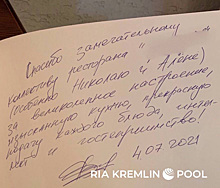 Спасибо замечательному
коллективу ресторана "
(особенно Николаю и Алёне)
за великолепное настроение,
изысканную кухню, прекрасную
подачу каждого блюда,
и гостеприимство!
4.07.2021
RIA KREMLIN POOL